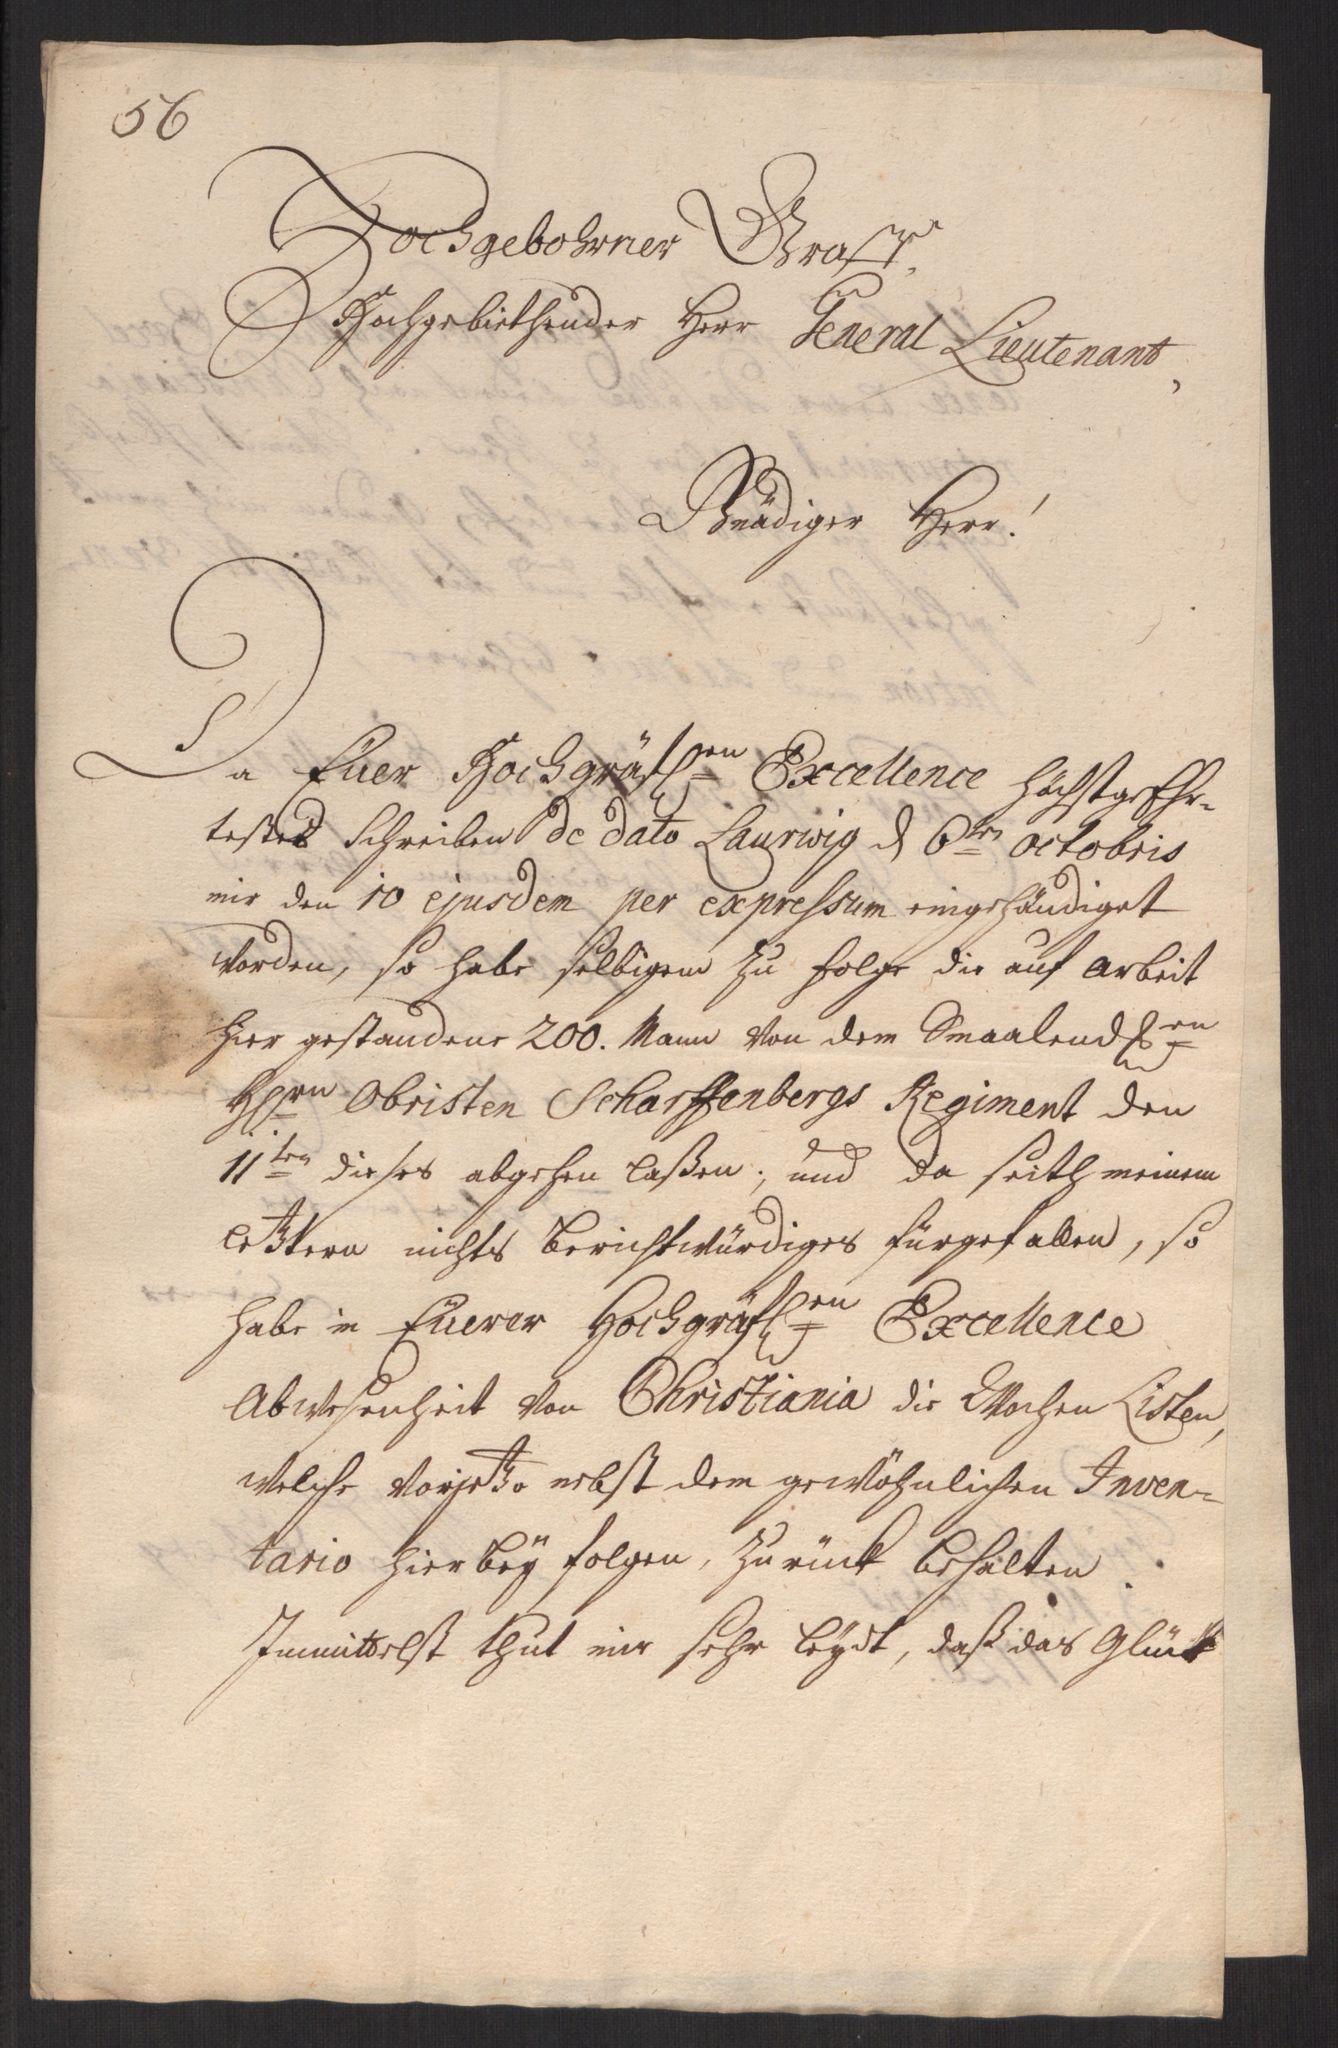 56
Hochgebohrner Graff,
Hochgebiethender Herr General Lieutenant,
Gnädiger Herr!
Da Euer Hochgräfl:en Excellence höchstgeEhr-
testes Schreiben de dato Laurwig d 6ten octobris
mir den 10 ejusdem per expressum eingehändiget
worden, so habe selbigem zu folge die auf arbeit
hier gestandene 200. Mann von dem Smaalendsen
H:rn Obristen Scharffenbergs Regiment den
11ten dieses abgehen laßen; und da seith meinem
letztern nichts berichtwürdiges fürgefallen, so
habe in Euerer Hochgräfl:en Excellence
Abwesenheit von Christiania die Wochen Listen,
welche vorjetzo nebst dem gewöhnlichen Inven-
tario hierbeÿ folgen, zurück behalten.
Immittelst thut mir sehr leÿdt, daß das Glück